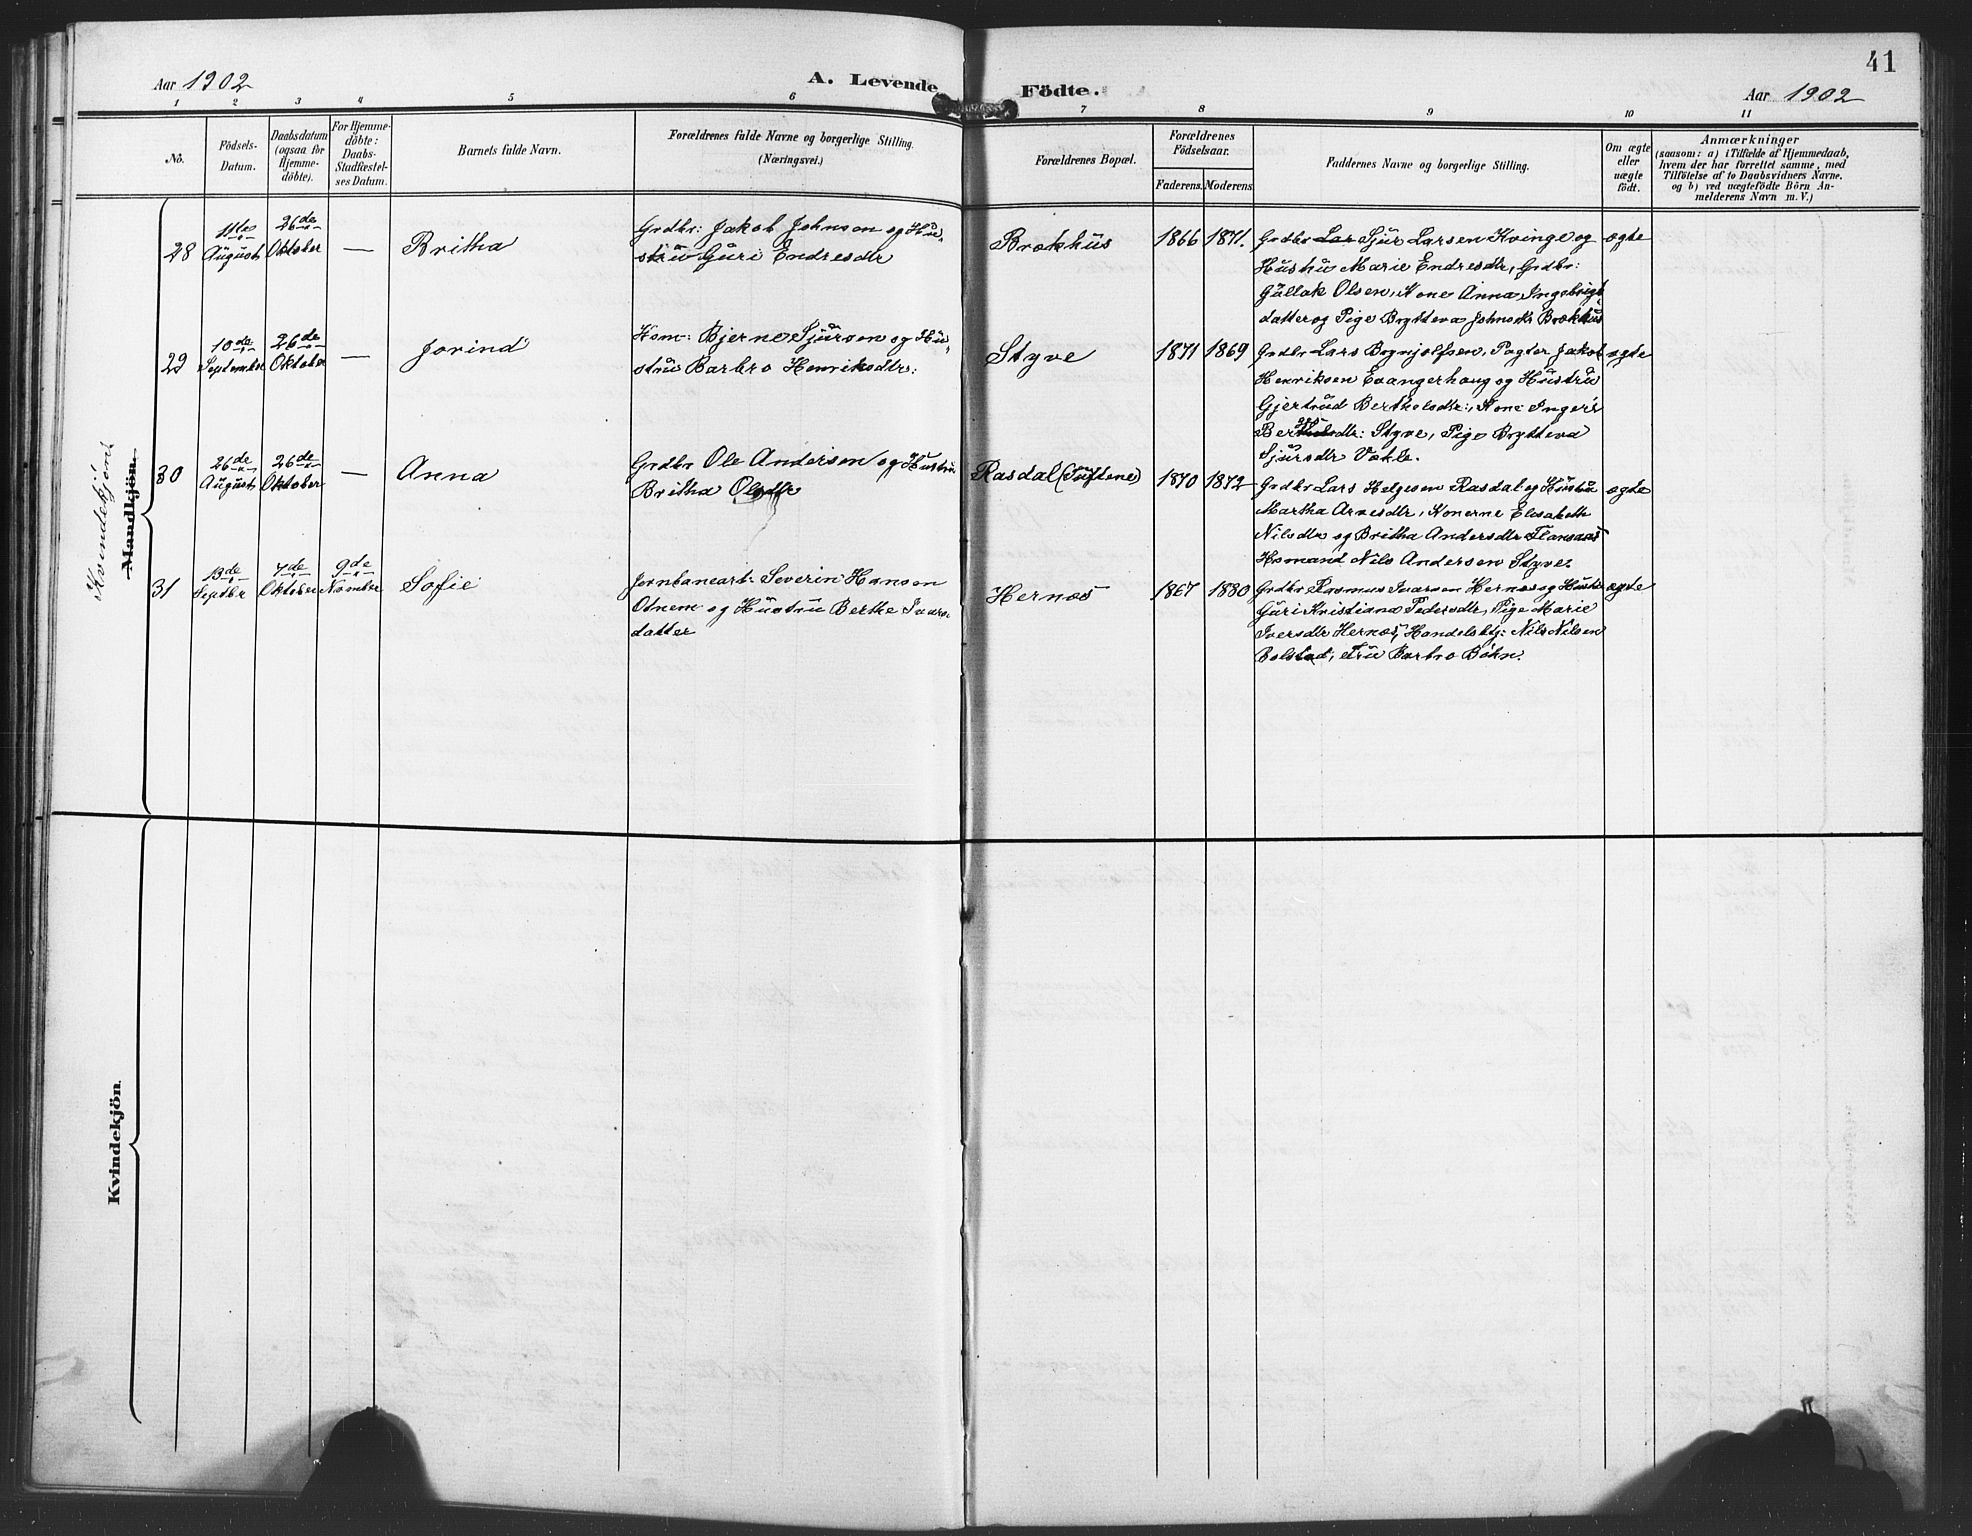 41
Aar 1902
A. Levende Födte.
Aar 1902
1 2 3 4 5 6 7 8 9 10 11
No.
Födsels-
Datum.
Daabsdatum
(ogsaa for
Hjemme-
döbte).
For Hjemme-
döbte:
Daabs-
Stadfæstel-
ses Datum.
Barnets fulde Navn.
Forældrenes fulde Navne og borgerlige Stilling.
(Næringsvei.)
Forældrenes Bopæl.
Forældrenes
Födselsaar.
Faderens.
Moderens.
Faddernes Navne og borgerlige Stilling.
Om ægte
eller
uægte
födt.
Anmærkninger
(saasom: a) i Tilfælde af Hjemmedaab,
hvem der har forrettet samme, med
Tilföielse af to Daabsvidners Navne.
og b) ved uægtefödte Börn An-
melderens Navn m. V.)
Kvindekjön
Mandkjön.
28
11te
August
26de
Oktober
—
Britha
Grdbr: Jakob Johnson og Hu-
stru Guri Endresdtr
Brækhus
1866 1871.
Grdbr Lar Sjur Larsen Kvinge og
Hustru Marie Endresdtr, Grdbr:
Gullak Olsen, Kone Anna Ingebrigt-
datter og Pige Brytteva Johnsdtr Brækhus
ægte
29
10de
September
26de
Oktober
—
Jorind
Hsm: Bjerne Sjurson og Hu-
stru Barbro Henriksdtr:
Styve
1871 1869
Grdbr Lars Brynjolfsen, Pagter Jakob
Henriksen Evangerhaug og Hustru
Gjertrud Bertholsdtr:, Kone Inger
dtr: Styve, Pige Brytteva
Sjursdtr Væle.
ægte
30
26de
August
26de
Oktober
—
Anna
Grdbr Ole Andersen og Hustru
Britha Olsdtr
Rasdal (Tuftene)
1870 1872
Grdbr Lars Helgesen Rasdal og Hustru
Martha Arnesdtr, Konerne Elisabeth
Nilsdtr og Britha Andersdtr
Husmand Nils Andersen Styve.
ægte
31
13de
Septbr
7de
Oktober
9de
November
Sofie
Jernbanearb: Severin Hansen
Otnem og Hustru Berthe Ivars-
datter
Hernæs
1867 1880
Grdbr Rasmus Ivarsen Hernæs og Hustru
Guri Kristiana Pedersdtr, Pige Marie
Iversdtr Hernæs, Handelsbtj: Nils Nilsen
Bolstad, Fru Barbro Bøhn.
ægte
Kvindekjön